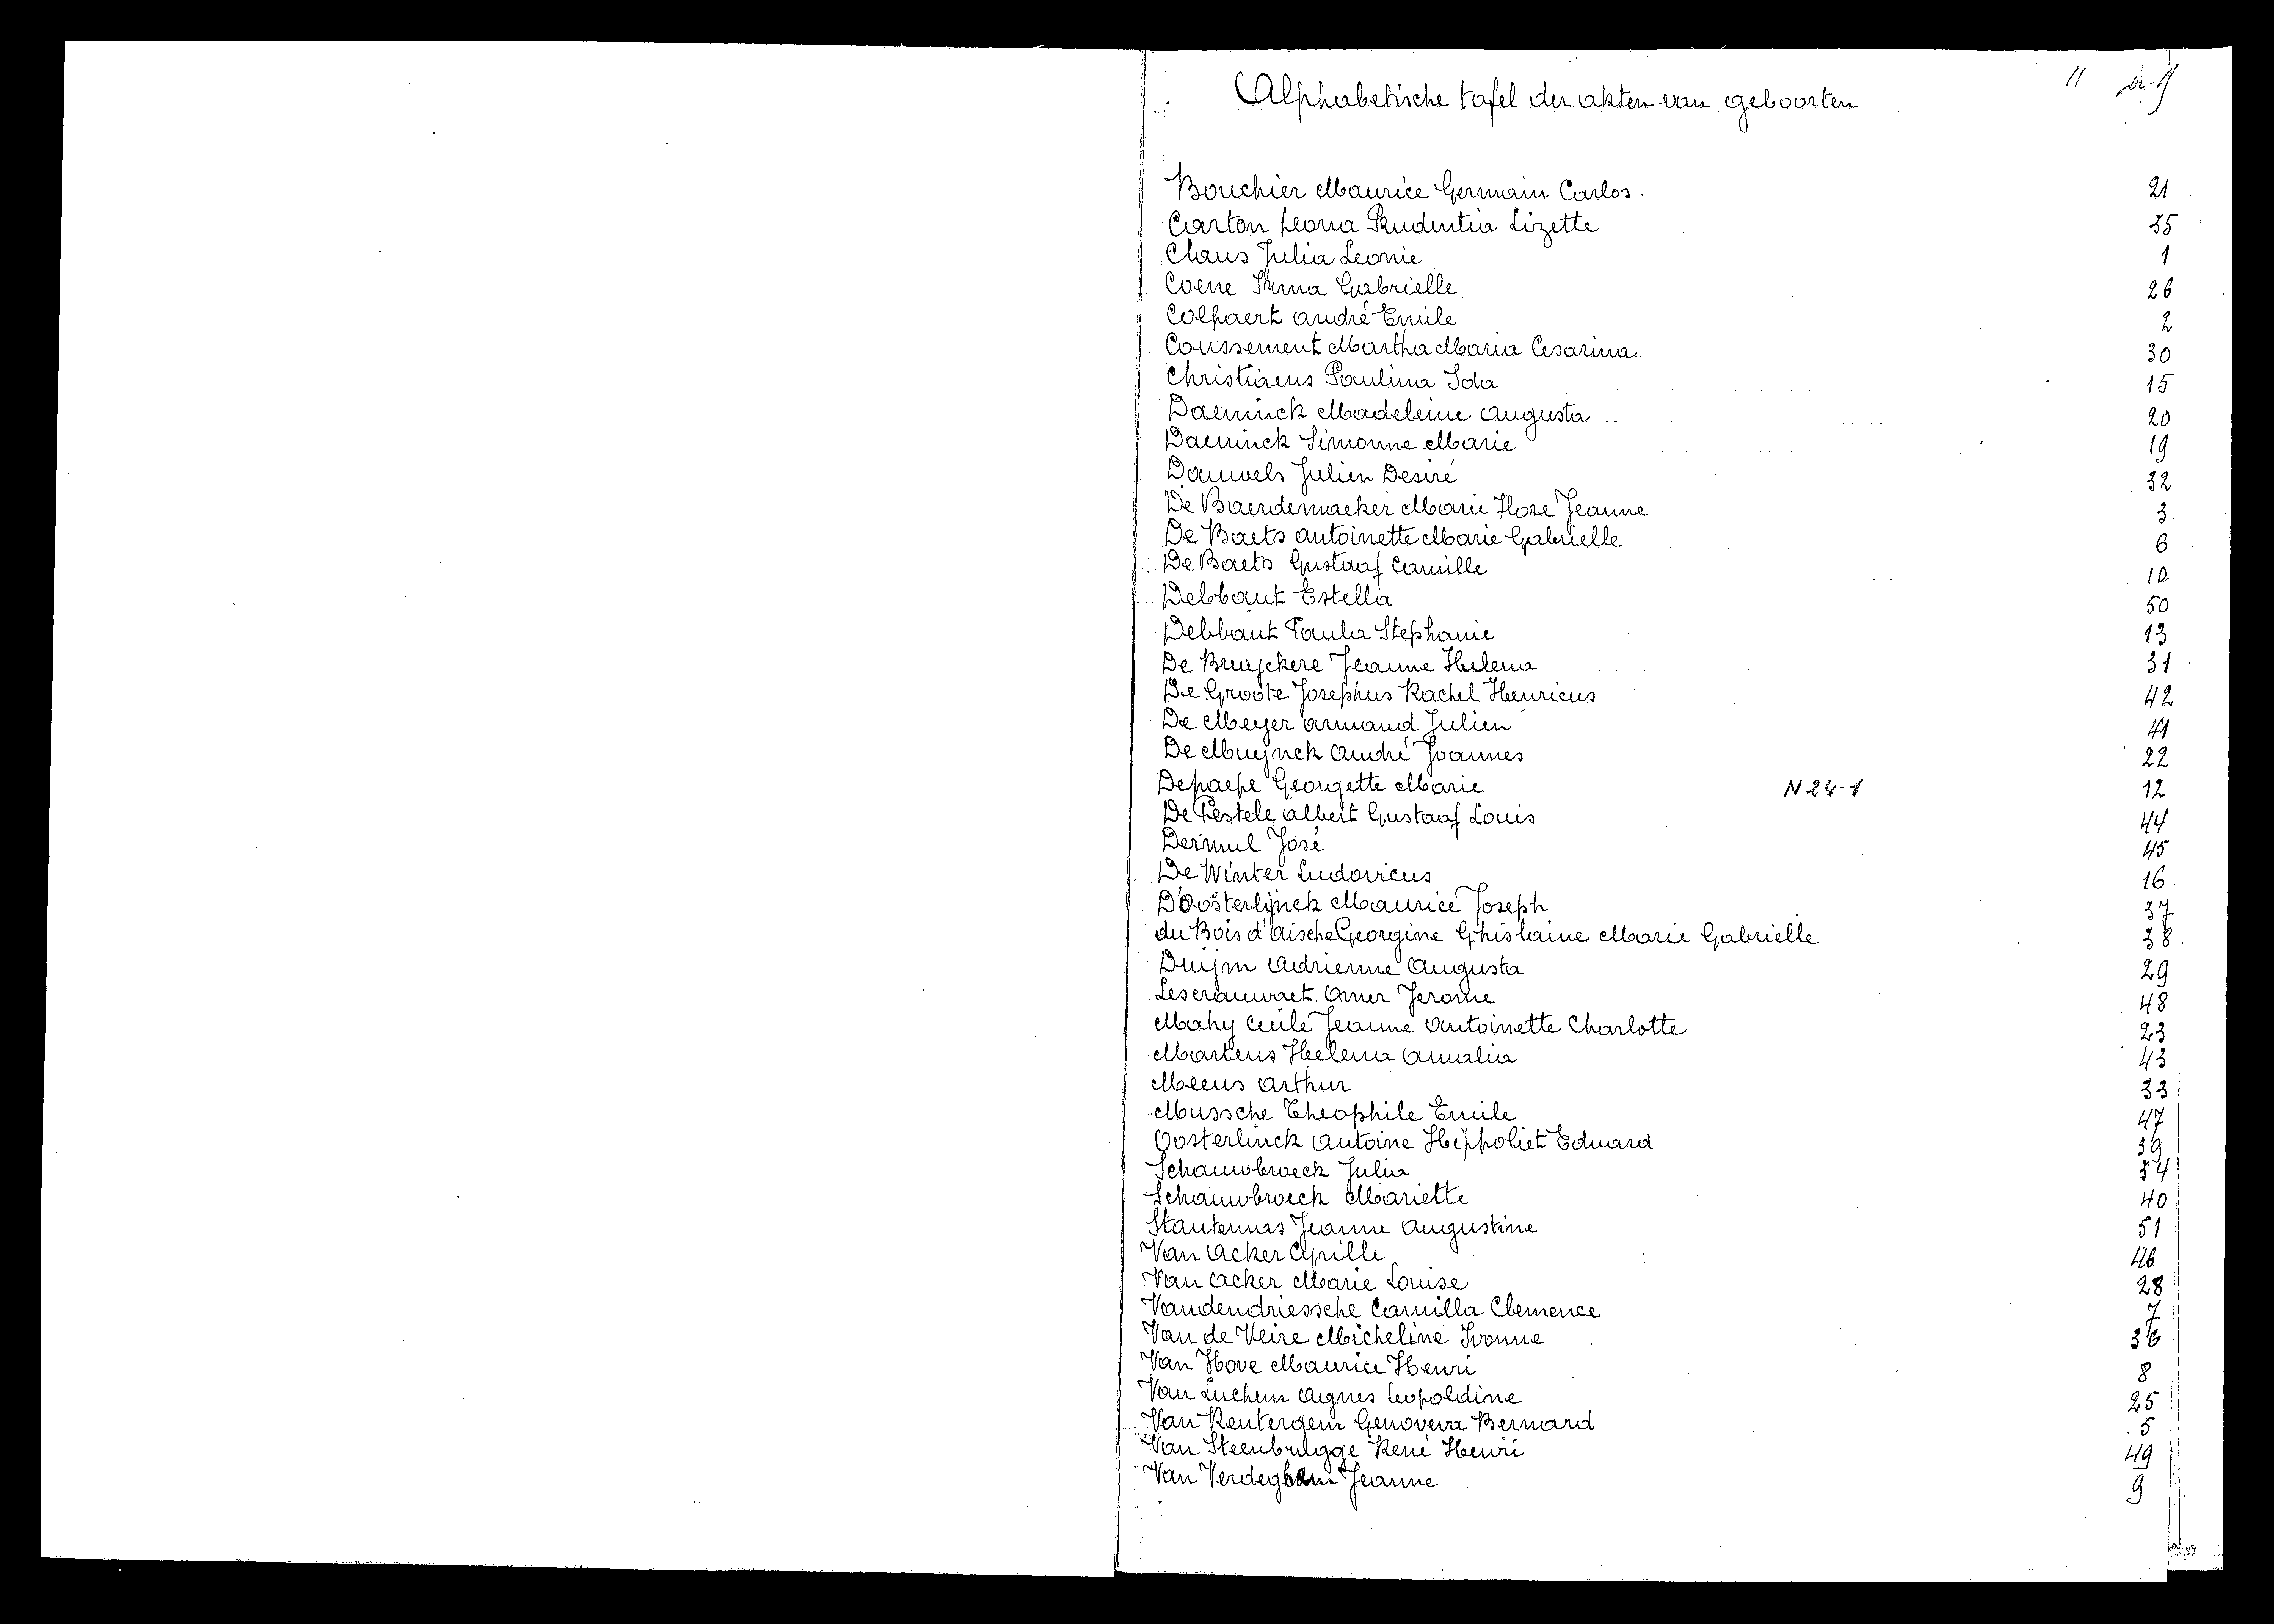 Alphabetische tafel der akten van geboorten 11
Bouchier Maurice Germain Carlos. 21
Carton Leona Prudentia Lizette 35
Claus Julia Leonie 1
Coene Irma Gabrielle 26
Colpaert André Emile 2
Coussement Martha Maria Cesarina 30
Christiaens Paulina Ida 15
Daeninck Madeleine Augusta 20
Daeninck Simonne Marie 19
Dauwels Julien Desiré 32
De Baerdemaeker Marie Flore Jeanne 3.
De Baets Antoinette Marie Gabrielle 6
De Baets Gustaaf Camille 10
Debbaut Estella 50
Debbaut Paula Stephanie 13
De Bruijckere Jeanne Helena 31
De Groote Josephus Rachel Henricus 42
De Meyer Armand Julien 41
De Muijnck André Joannes 22
Depaepe Georgette Marie N 24-1 12
De Pestele Albert Gustaaf Louis 44
Dermul José 45
De Winter Ludovicus 16
D'Oosterlijnck Maurice Joseph 37
du Bois d'Aische Georgine Ghislaine Marie Gabrielle 38
Duijm Adrienne Augusta 29
Lescrauwaet Omer Jerome 48
Mahy Cecile Jeanne Antoinette Charlotte 23
Martens Helena Amalia 43
Meeus Arthur 33
Mussche Theophile Emile 47
Oosterlinck Antoine Hippoliet Eduard 39
Schauwbroeck Julia 34
Schauwbroeck Mariette 40
Stautemas Jeanne Augustine 51
Van Acker Cyrille 46
Van Acker Marie Louise 28
Vandendriessche Camilla Clemence 7
Van de Veire Micheline Ivonne 36
Van Hove Maurice Henri 8
Van Luchem Agnes Leopoldine 25
Van Rentergem Genoveva Bernard 5
Van Steenbrugge René Henri 49
Van Verdeghem Jeanne 9